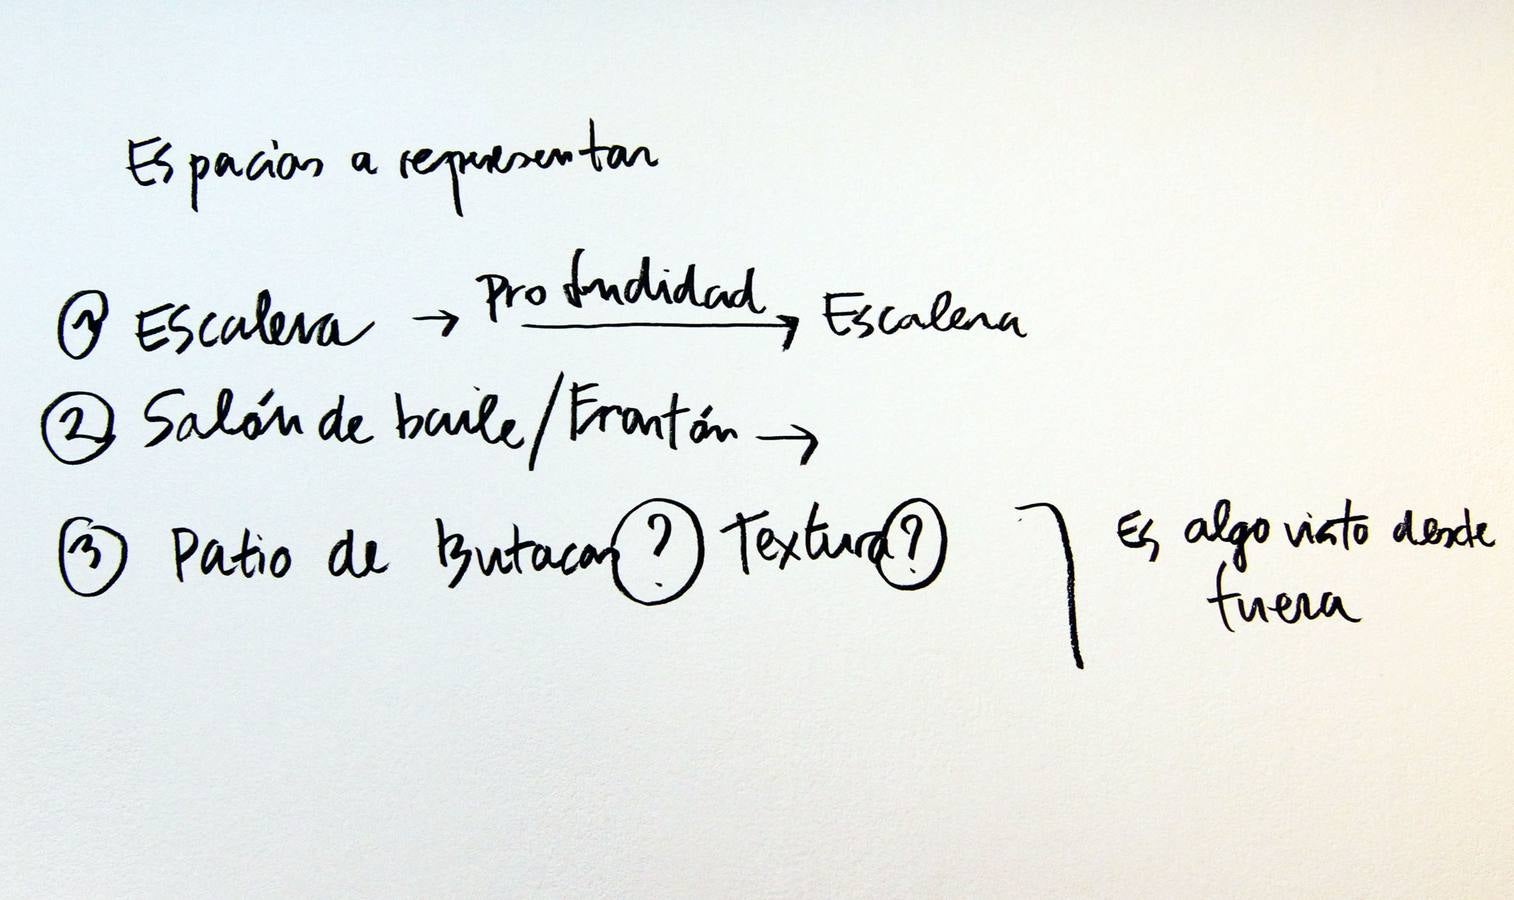 Espacios a representar
① Escalera → Profundidad → Escalera
② Salón de baile/Frontón →
③ Patio de Butacas ? Textura ?
Es algo visto desde
fuera